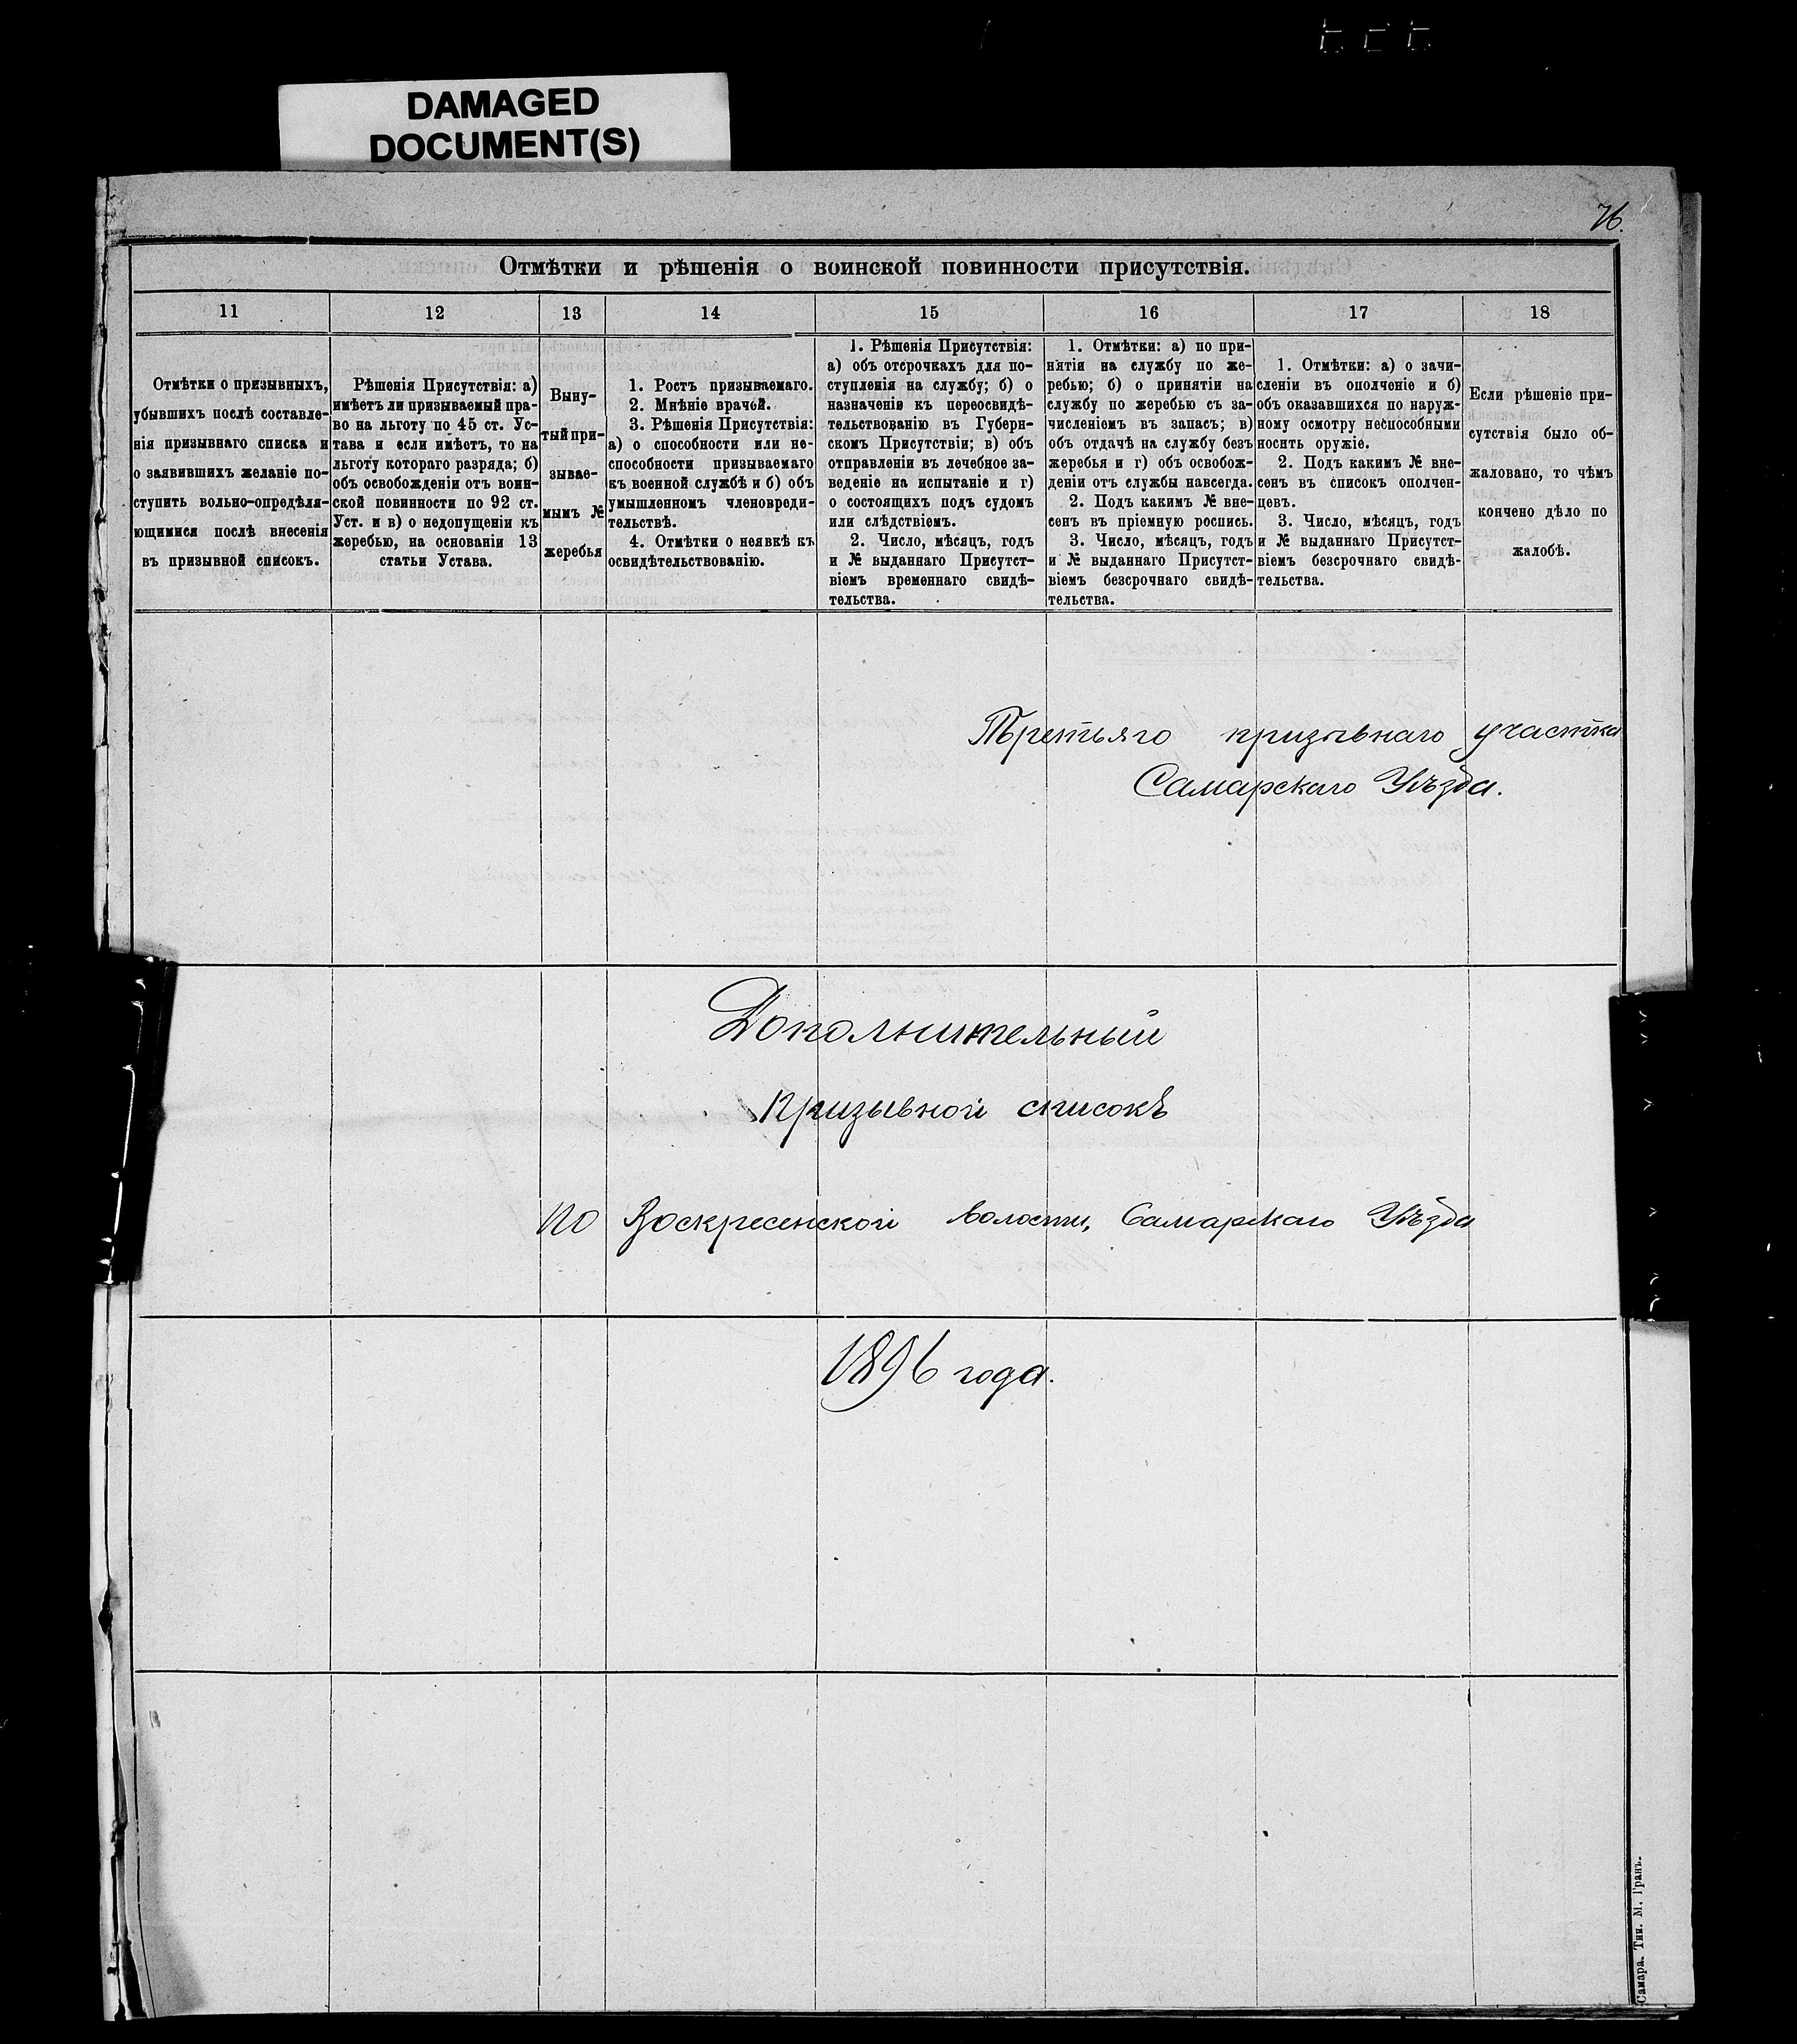 DAMAGED
DOCUMENT(S)
76.
Отмѣтки и рѣшенія о воинской повинности присутствія.
11 12 13 14 15 16 17 18
Отмѣтки о призывныхъ,
убывшихъ послѣ составле-
нія призывнаго списка и
о заявившихъ желаніе по-
ступить вольно-опредѣля-
ющимися послѣ внесенія
въ призывной списокъ.
Рѣшенія Присутствія: а)
имѣетъ ли призываемый пра-
во на льготу по 45 ст. Ус-
тава и если имѣетъ, то на
льготу котораго разряда; б)
объ освобожденіи отъ воин-
ской повинности по 92 ст.
Уст. и в) о недопущеніи къ
жеребью, на основаніи 13
статьи Устава.
Выну-
тый при-
зывае-
мымъ №
жеребья
1. Ростъ призываемаго.
2. Мнѣніе врачей.
3. Рѣшенія Присутствія:
а) о способности или не-
способности призываемаго
къ военной службѣ и б) объ
умышленномъ членовреди-
тельствѣ.
4. Отмѣтки о неявкѣ къ
освидѣтельствованію.
1. Рѣшенія Присутствія:
а) объ отсрочкахъ для по-
ступленія на службу; б) о
назначеніи къ переосвидѣ-
тельствованію въ Губерн-
скомъ Присутствіи; в) объ
отправленіи въ лечебное за-
веденіе на испытаніе и г)
о состоящихъ подъ судомъ
или слѣдствіемъ.
2. Число, мѣсяцъ, годъ
и № выданнаго Присутст-
віемъ временнаго свидѣ-
тельства.
1. Отмѣтки: а) по при-
нятіи на службу по же-
ребью; б) о принятіи на
службу по жеребью съ за-
численіемъ въ запасъ; в)
объ отдачѣ на службу безъ
жеребья и г) объ освобож-
деніи отъ службы навсегда.
2. Подъ какимъ № вне-
сенъ въ пріемную роспись.
3. Число, мѣсяцъ, годъ
и № выданнаго Присутст-
віемъ безсрочнаго свидѣ-
тельства.
1. Отмѣтки: а) о зачи-
сленіи въ ополченіе и б)
объ оказавшихся по наруж-
ному осмотру неспособными
носить оружіе.
2. Подъ какимъ № вне-
сенъ въ списокъ ополчен-
цевъ.
3. Число, мѣсяцъ, годъ
и № выданнаго Присутст-
віемъ безсрочнаго свидѣ-
тельства.
Если рѣшеніе при-
сутствія было об-
жаловано, то чѣмъ
кончено дѣло по
жалобѣ.
Третьяго призывнаго участка
Самарскаго Уѣзда.
Дополнительный
призывной списокъ
по Воскресенской волости, Самарскаго Уѣзда
1896 года.
Самара. Тип. М. Гранъ.